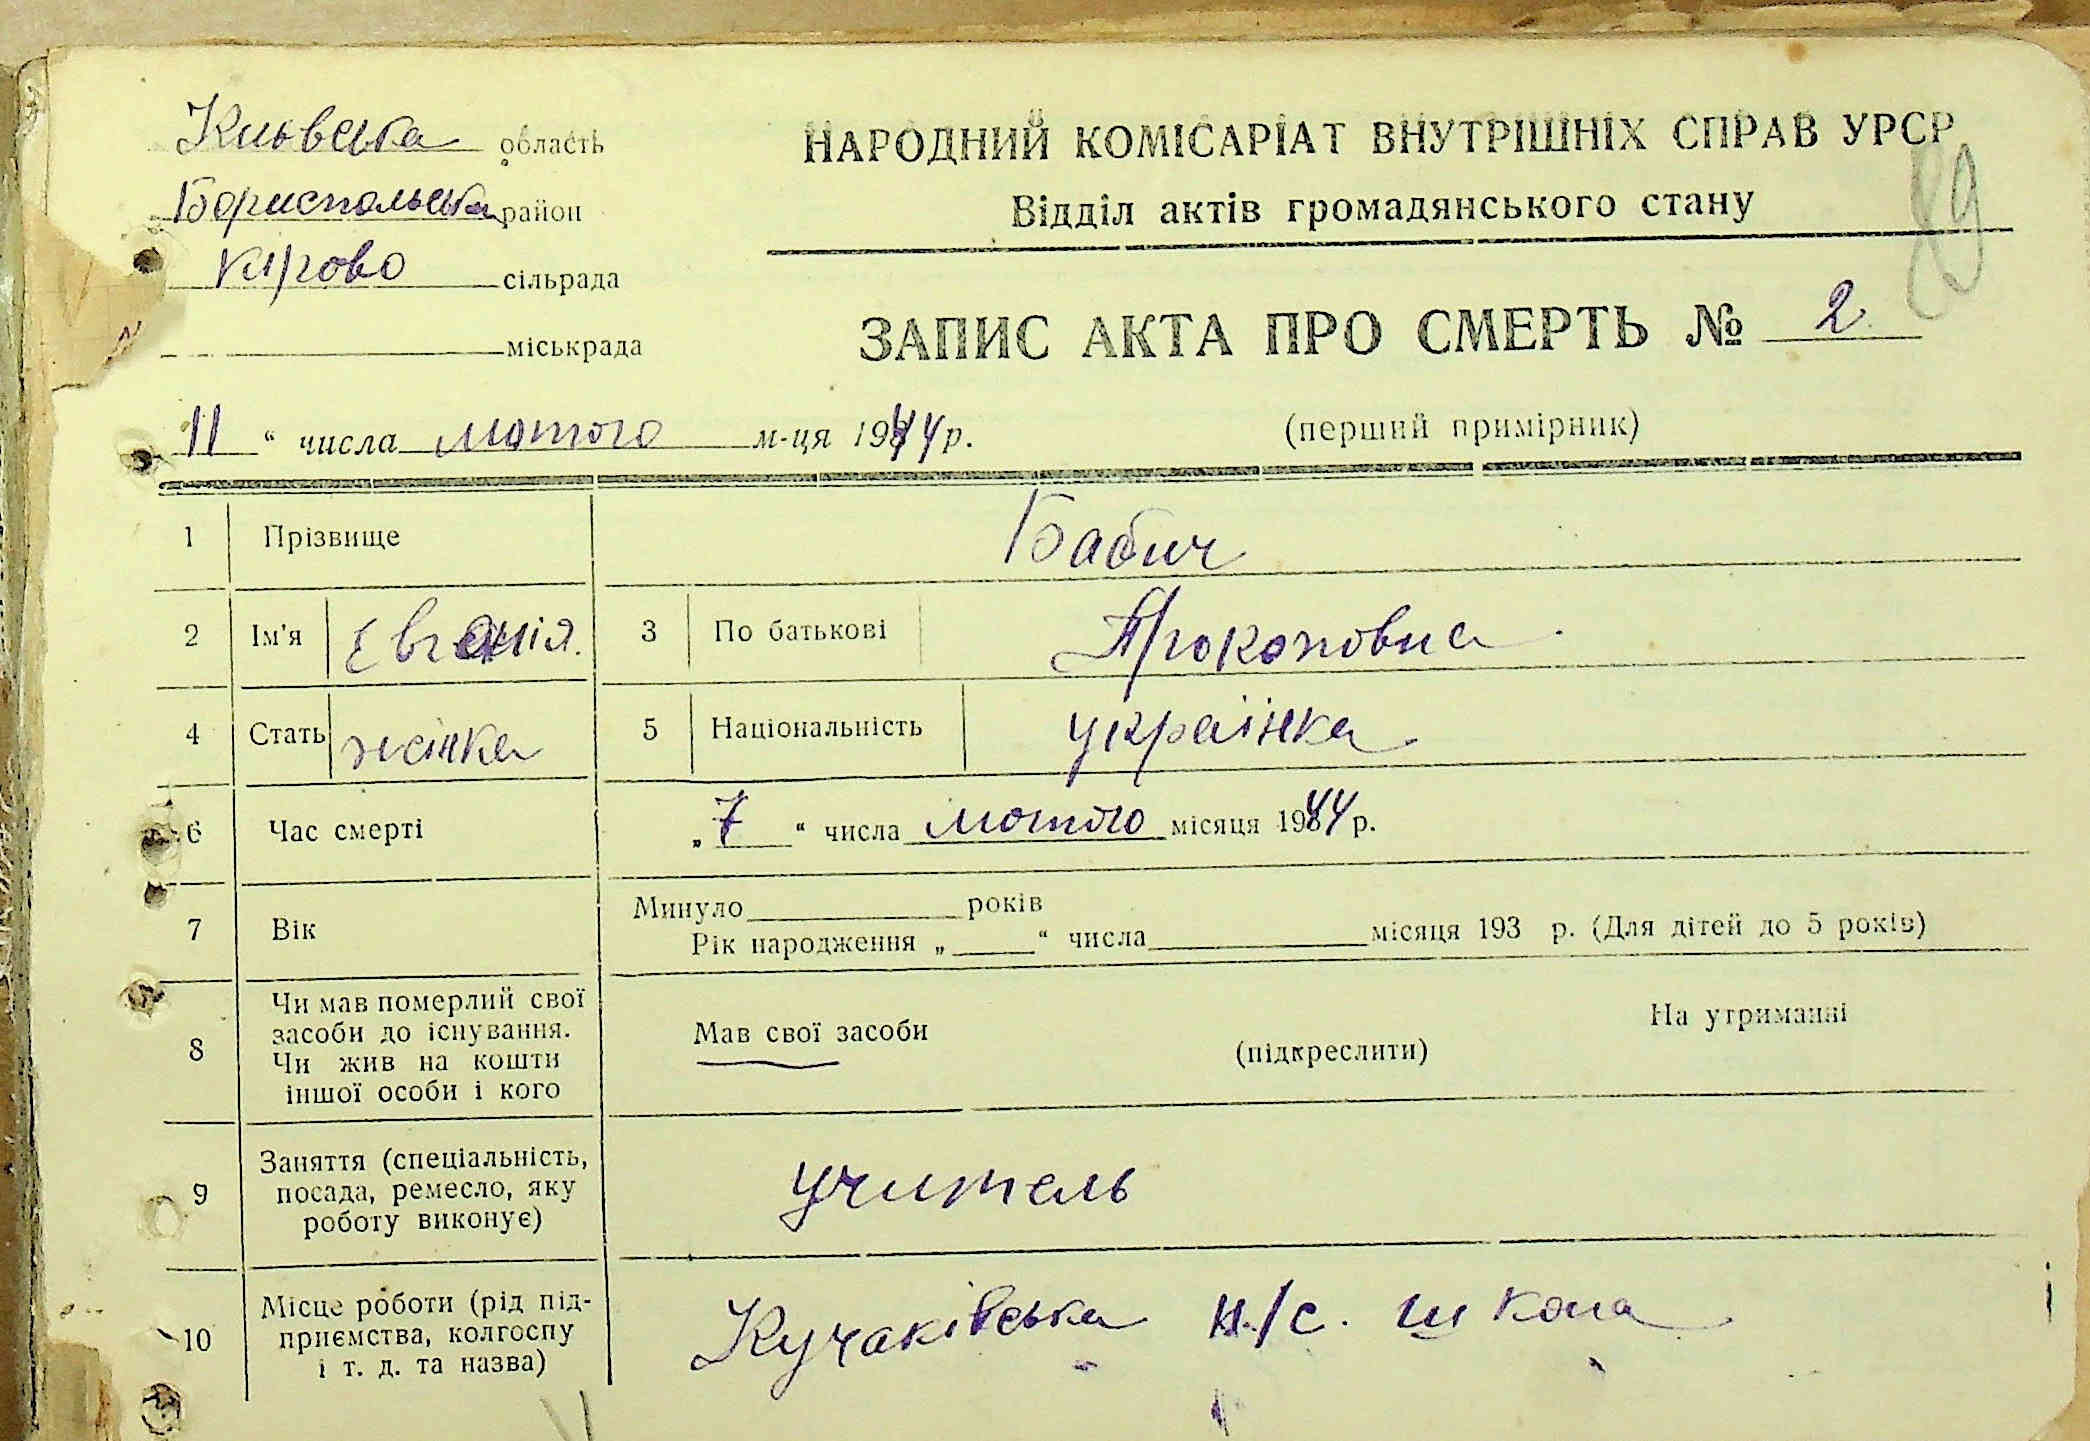 Киъвська область
Бориспольська район
Кірово сільрада
міськрада
НАРОДНИЙ КОМІСАРІАТ ВНУТРІШНІХ СПРАВ УРСР
Відділ актів громадянського стану
89
ЗАПИС АКТА ПРО СМЕРТЬ № 2
11 “ числа лютого м-ця 1944 р.
(перший примірник)
1 Прізвище Бабич
2 Ім'я Євгенія. 3 По батькові Прокоповна
4 Стать жінка 5 Національність українка
6 Час смерті „ 7 “ числа лютого місяця 1944 р.
7 Вік Минуло років
Рік народження „ “ числа місяця 193 р. (Для дітей до 5 років)
8 Чи мав померлий свої
засоби до існування.
Чи жив на кошти
іншої особи і кого
Мав свої засоби (підкреслити) На утриманні
9 Заняття (спеціальність,
посада, ремесло, яку
роботу виконує)
учитель
10 Місце роботи (рід під-
приємства, колгоспу
і т. д. та назва)
Кучаківська н/с. школа